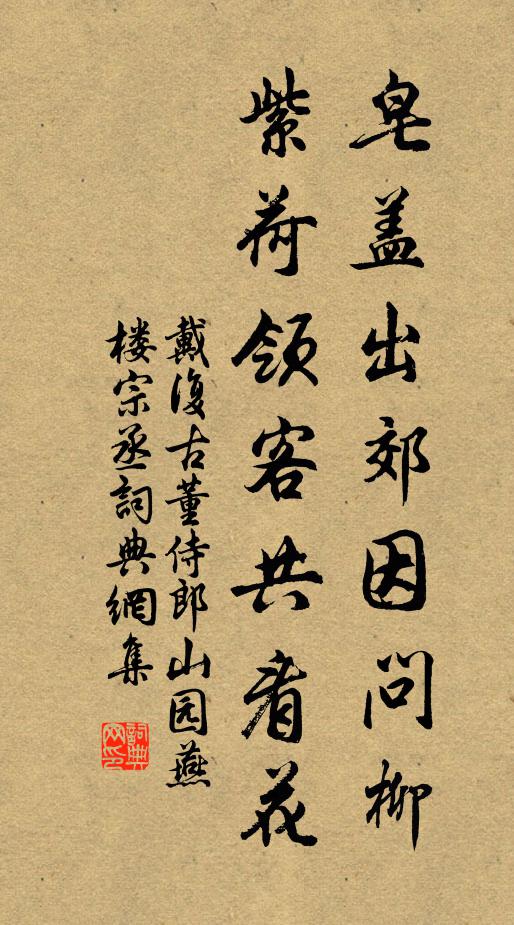 皂盖出郊因问柳
紫荷领客共看花
戴復古董侍郎山园燕
楼宗丞詞典網集
詞典
网印